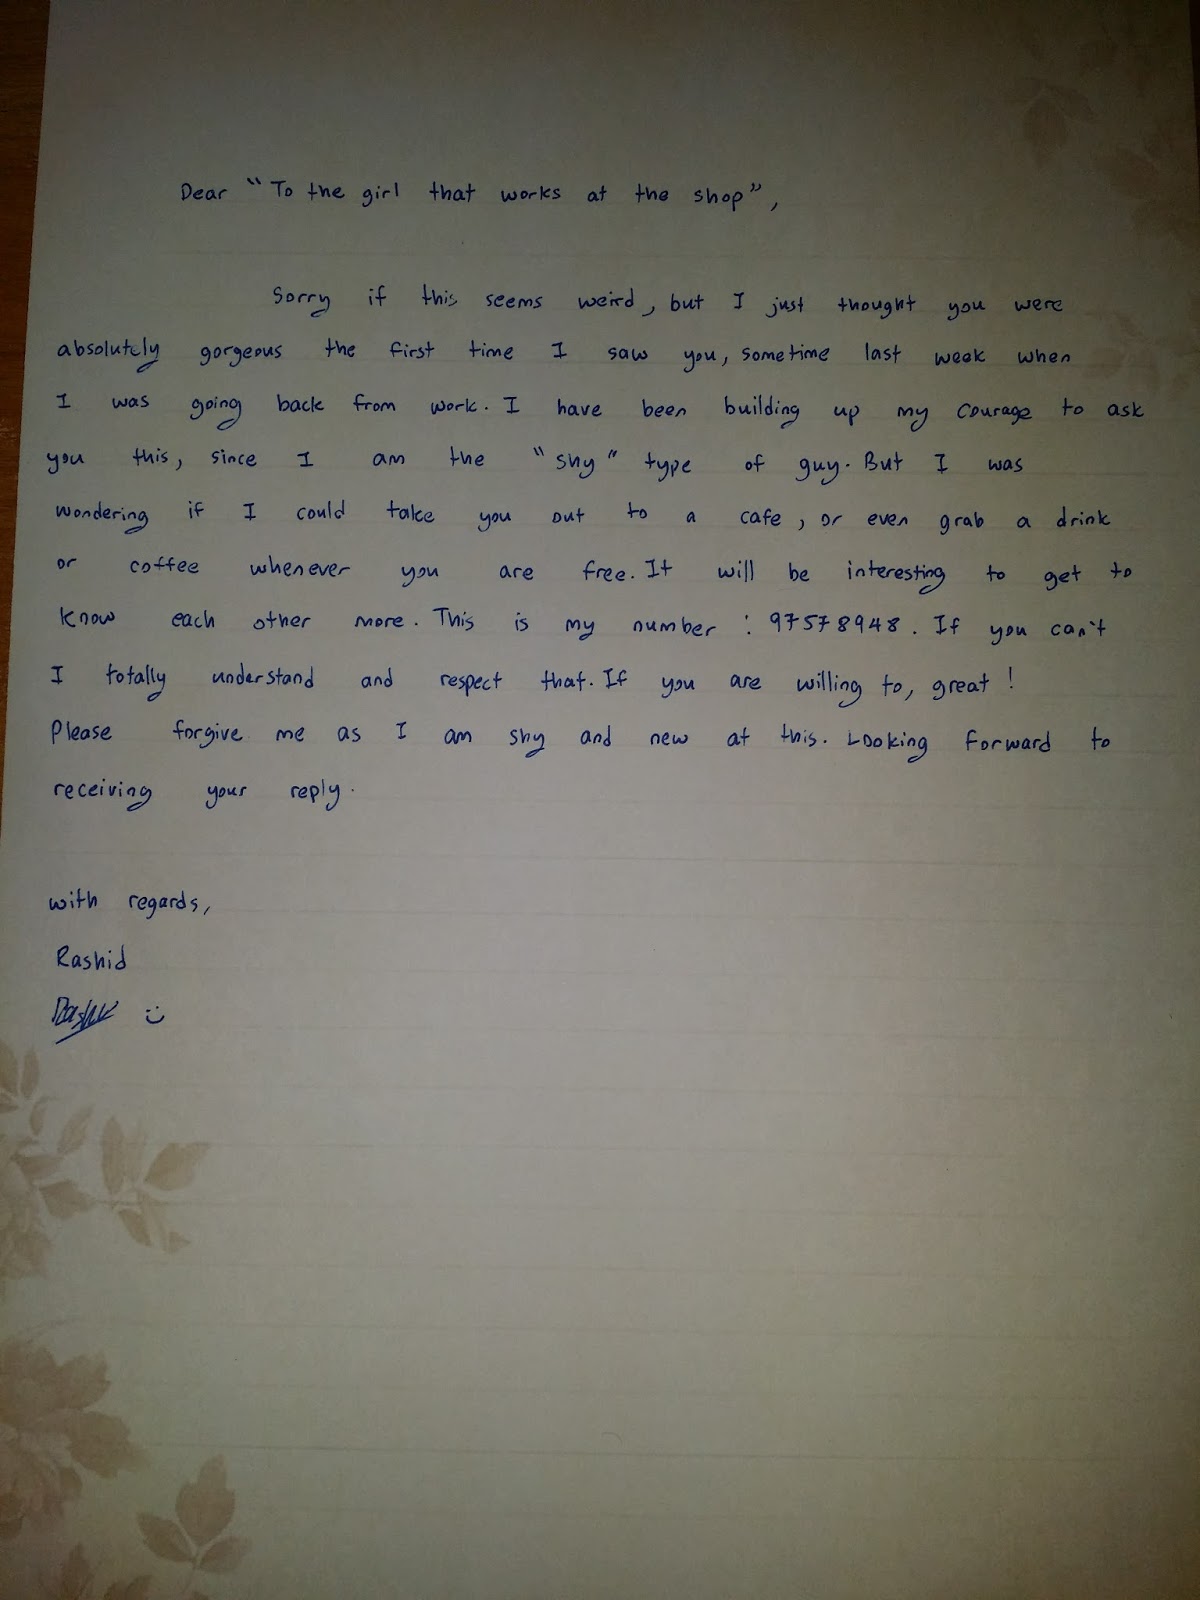 Dear "To the girl that works at the shop",
Sorry if this seems weird, but I just thought you were
absolutely gorgeous the first time I saw you, sometime last week when
I was going back from work. I have been building up my courage to ask
you this, since I am the "shy" type of guy. But I was
wondering if I could take you out to a cafe, or even grab a drink
or coffee whenever you are free. It will be interesting to get to
know each other more. This is my number : 97578948. If you can't
I totally understand and respect that. If you are willing to, great!
Please forgive me as I am shy and new at this. Looking forward to
receiving your reply.
with regards,
Rashid
:)